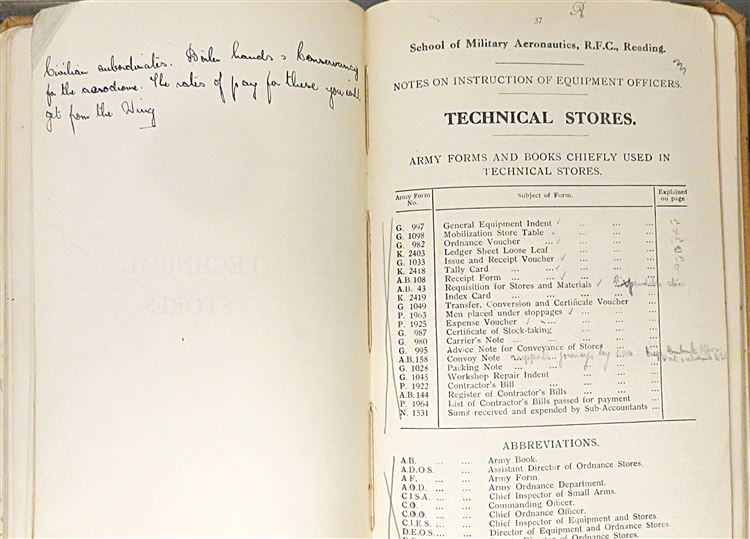 Civilian subordinates. Boiler hands & Conservancy
for the aerodrome. The rates of pay for these you will
get from the Wing
37
R
School of Military Aeronautics, R.F.C., Reading.
NOTES ON INSTRUCTION OF EQUIPMENT OFFICERS.
TECHNICAL STORES.
ARMY FORMS AND BOOKS CHIEFLY USED IN
TECHNICAL STORES.
Army Form No. Subject of Form. Explained on page
G. 997 General Equipment Indent ✓ ... ... ... 12
G. 1098 Mobilization Store Table ✓ ... ... ... 4
G. 982 Ordnance Voucher ... ✓ ... ... ...
K. 2403 Ledger Sheet Loose Leaf ... ... ...
G. 1033 Issue and Receipt Voucher ✓ ... ... ... 13
K. 2418 Tally Card ... ... ✓ ... ... ... 9
A.B. 108 Receipt Form ... ... ✓ ... ... ...
A.B. 43 Requisition for Stores and Materials ✓
K. 2419 Index Card ... ... ... ... ...
G. 1049 Transfer, Conversion and Certificate Voucher ...
P. 1963 Men placed under stoppages ✓ ... ... ...
P. 1925 Expense Voucher ✓ ... ... ... ...
G. 987 Certificate of Stock-taking ... ... ...
G. 980 Carrier's Note ... ... ... ... ...
G. 995 Advice Note for Conveyance of Stores ...
A.B. 158 Convoy Note
G. 1028 Packing Note ... ... ... ...
G. 1045 Workshop Repair Indent ... ... ...
P. 1922 Contractor's Bill ... ... ... ...
A.B. 144 Register of Contractor's Bills ... ... ...
P. 1964 List of Contractor's Bills passed for payment ...
N. 1531 Sums received and expended by Sub-Accountants ...
ABBREVIATIONS.
A.B. ... ... Army Book.
A.D.O.S. ... ... Assistant Director of Ordnance Stores.
A F. ... ... Army Form.
A.O.D. ... ... Army Ordnance Department.
C.I.S.A. ... ... Chief Inspector of Small Arms.
C.O. ... ... Commanding Officer.
C.O.O. ... ... Chief Ordnance Officer.
C.I.E.S. ... ... Chief Inspector of Equipment and Stores.
D.E.O.S. ... ... Director of Equipment and Ordnance Stores.